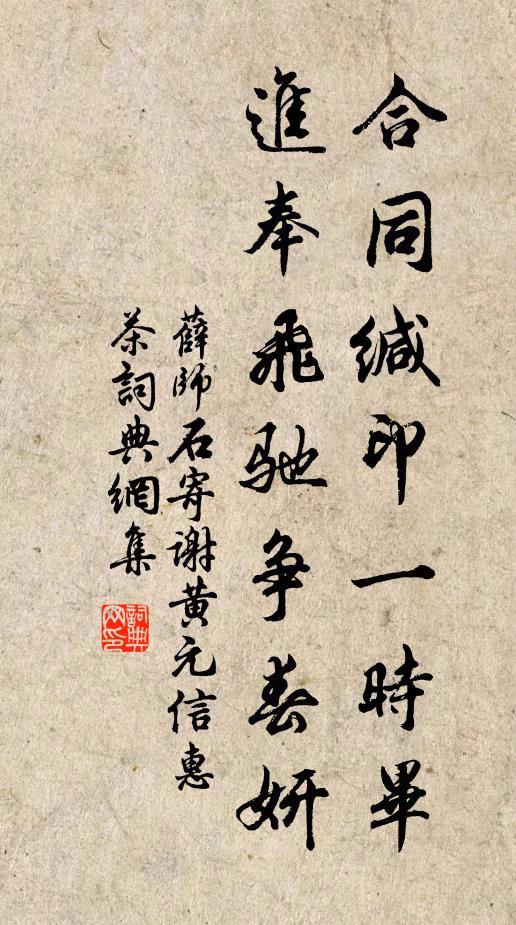 合同緘印一時畢
進奉飛馳争春妍
薛師石寄謝黄元信惠
茶詞典網集
詞典網印